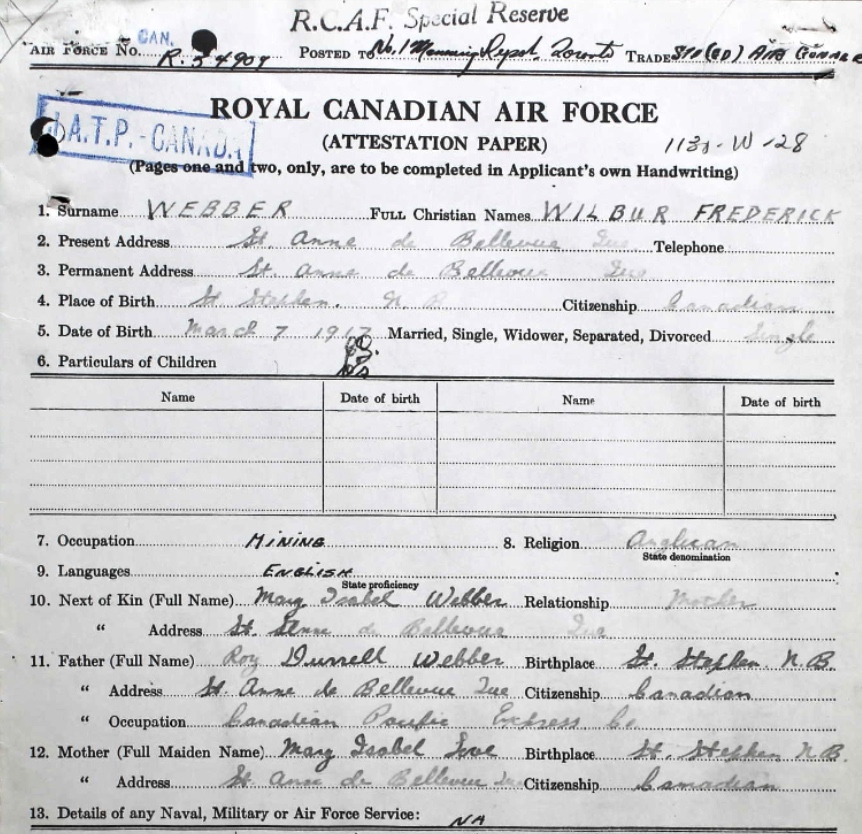 R.C.A.F. Special Reserve
CAN.
AIR FORCE NO. R.54904 POSTED TO No. 1 Manning Depot. Toronto TRADE Std (GD) AIR GUNNER
J.A.T.P.-CANADA
ROYAL CANADIAN AIR FORCE
(ATTESTATION PAPER) -W-28
(Pages one and two, only, are to be completed in Applicant's own Handwriting)
1. Surname WEBBER FULL Christian Names WILBUR FREDERICK
2. Present Address St. Anne de Bellevue Que Telephone
3. Permanent Address St. Anne de Bellevue Que
4. Place of Birth St Stephen. N B Citizenship Canadian
5. Date of Birth March 7 1917 Married, Single, Widower, Separated, Divorced Single
6. Particulars of Children
Name Date of birth Name Date of birth
7. Occupation MINING 8. Religion Anglican
State denomination
9. Languages ENGLISH
State proficiency
10. Next of Kin (Full Name) Mary Isabel Webber Relationship Mother
" Address St. Anne de Bellevue Que
11. Father (Full Name) Roy Durrell Webber Birthplace St. Stephen N.B.
" Address St. Anne de Bellevue Que Citizenship Canadian
" Occupation Canadian Pacific Express Co
12. Mother (Full Maiden Name) Mary Isabel Birthplace St. Stephen N.B.
" Address St Anne de Bellevue Que Citizenship Canadian
13. Details of any Naval, Military or Air Force Service: NA